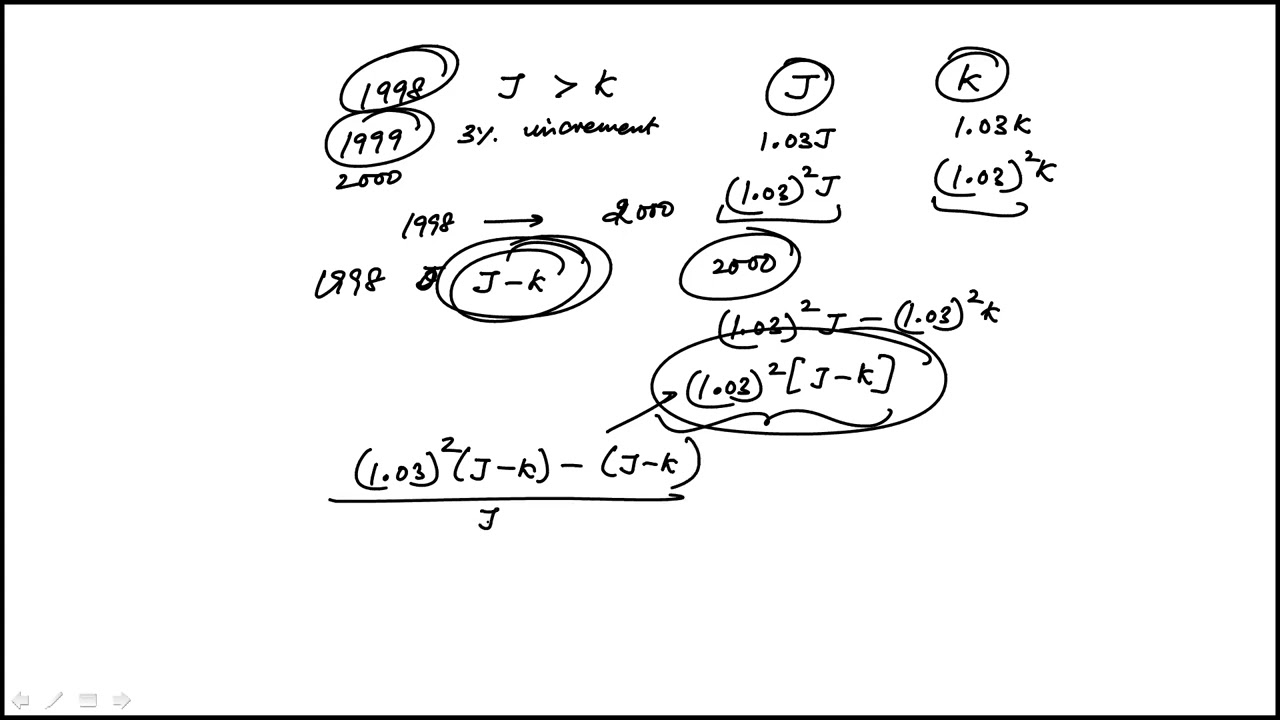 1998 J > K J K
1999 3% increment 1.03J 1.03K
2000 (1.03)²J (1.03)²K
1998 → 2000
1998 J-K 2000
(1.03)²J - (1.03)²K
(1.03)²[J-K]
(1.03)²(J-K) - (J-K)
J